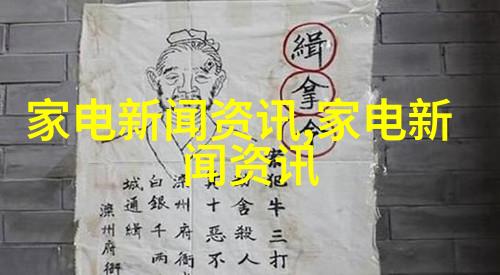 家电新闻资讯,家电新
闻资讯
緝拿令
犯牛三打
舍殺人
十惡不
滦州府衙
白銀千两
城通緝
滦州府衙